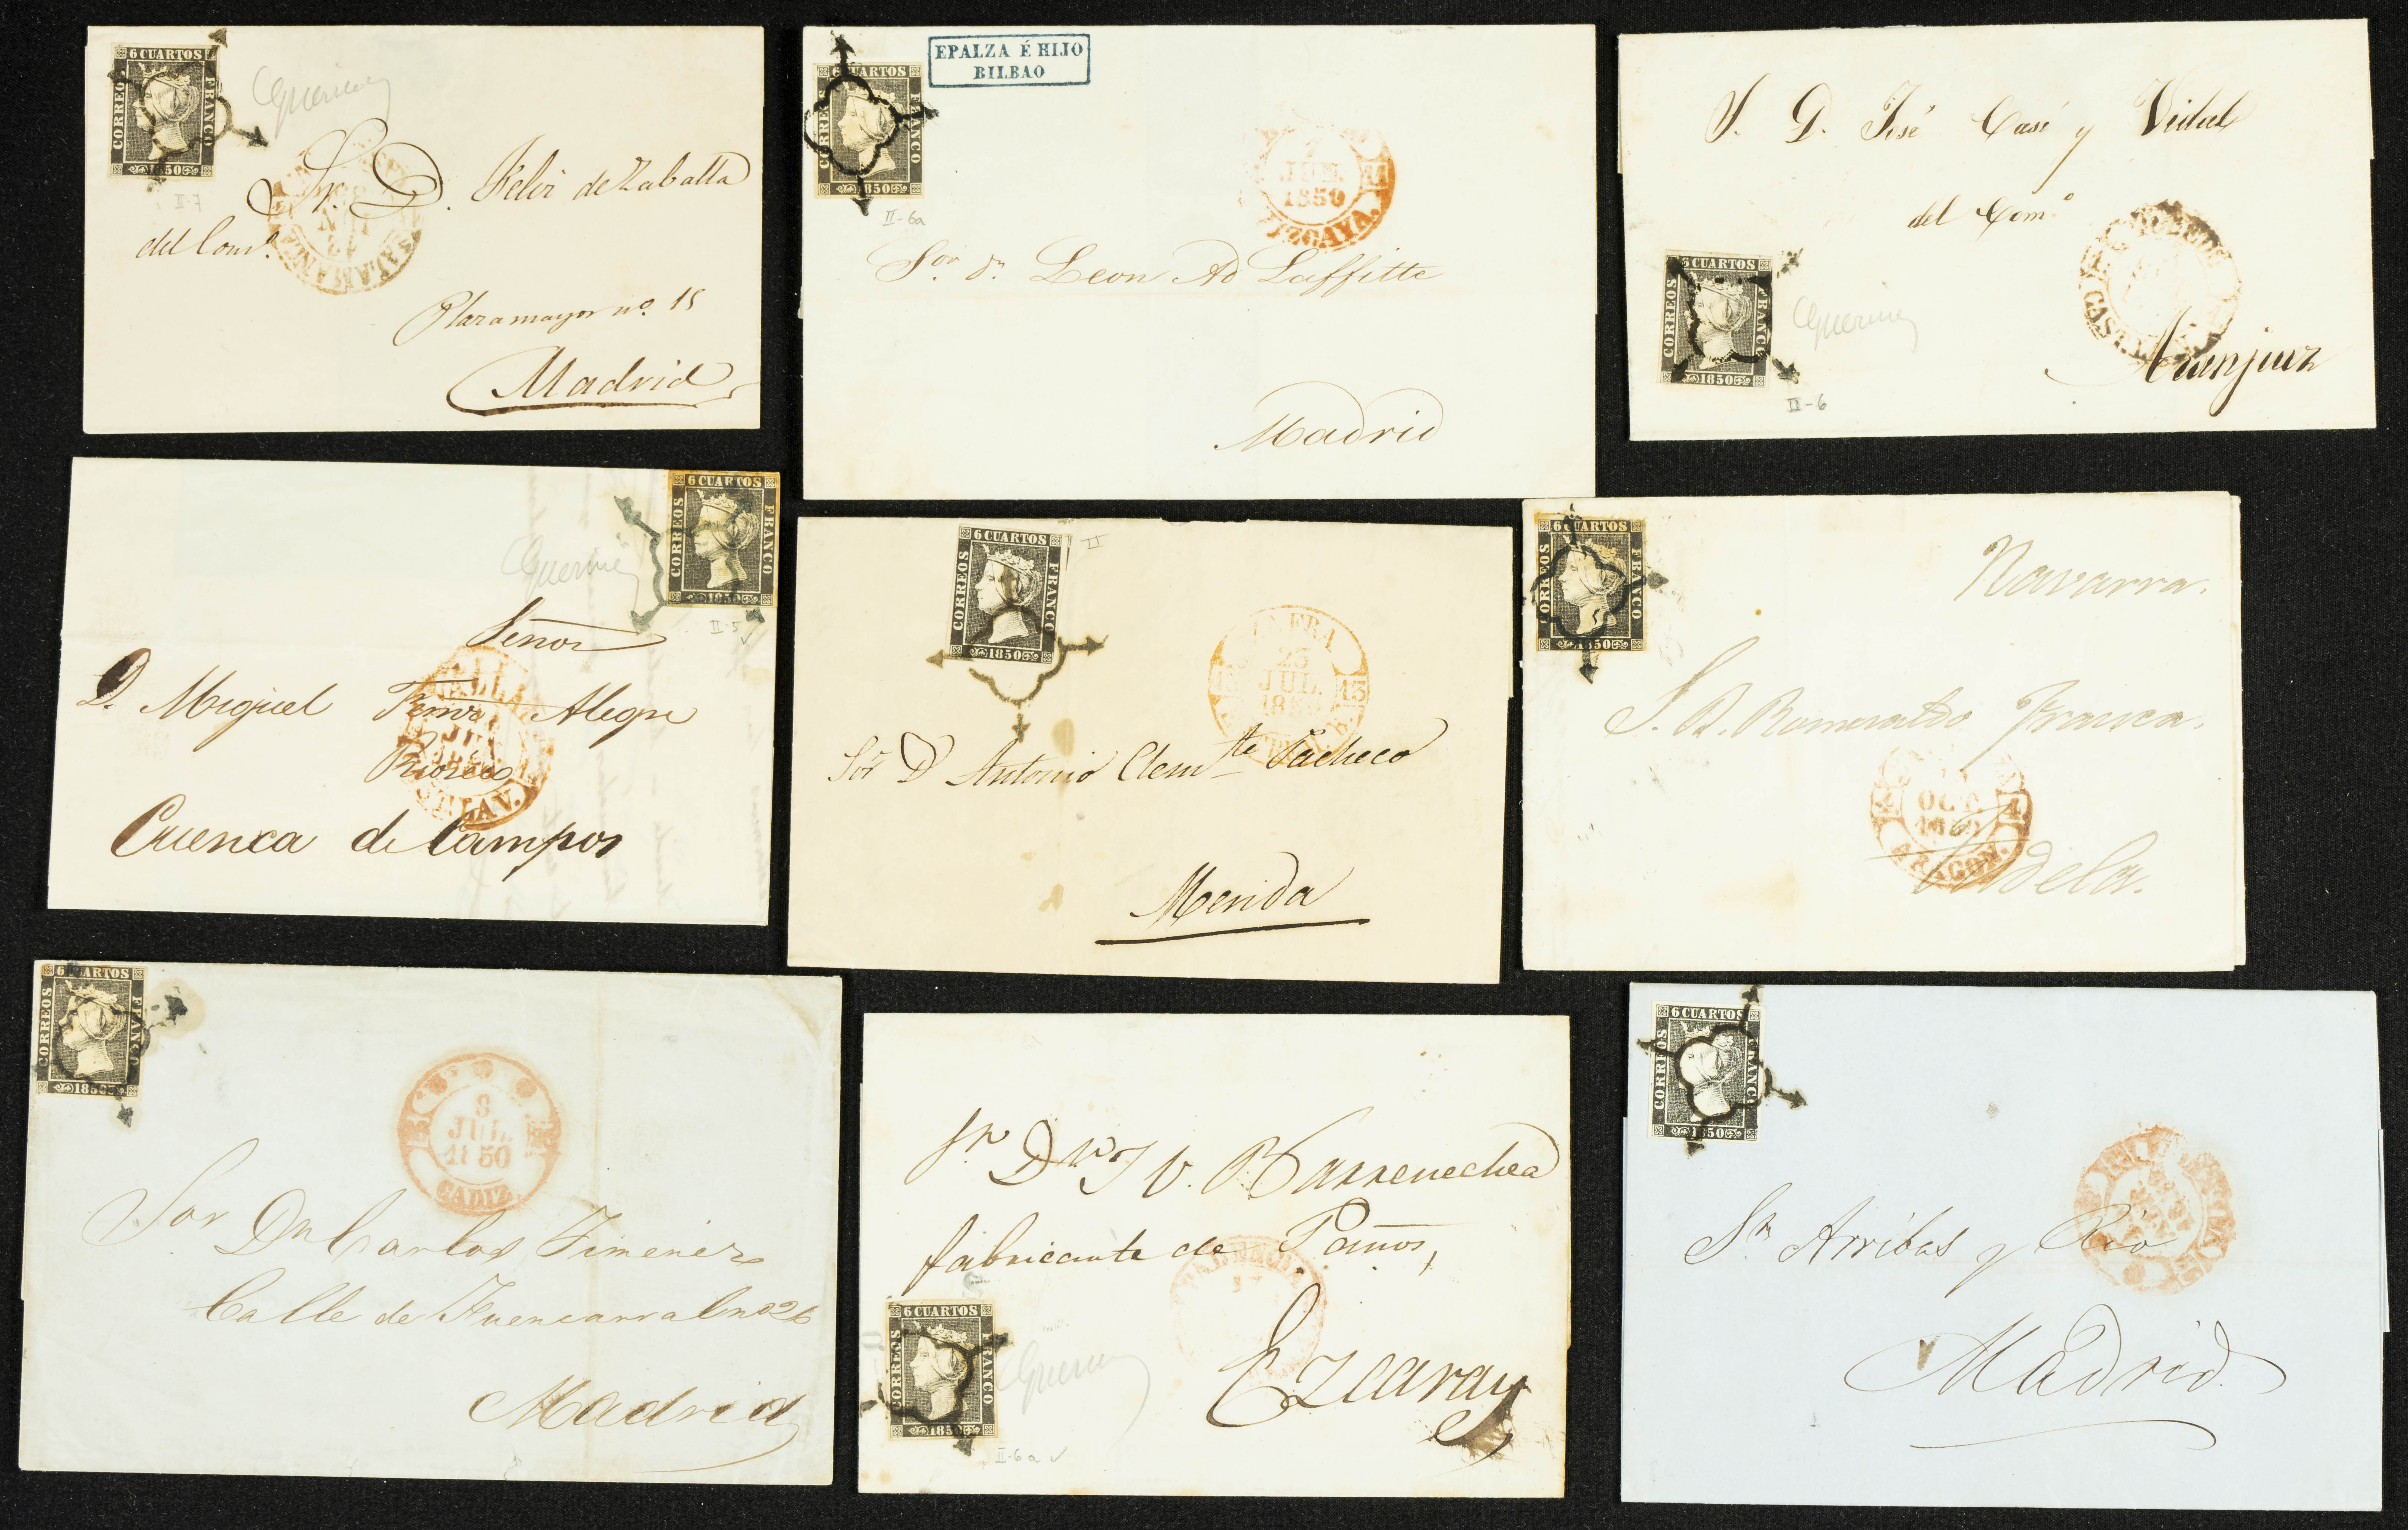 6 CUARTOS
CORREOS
FRANCO
1850
II-7
Sr. D. Felix de Zaballa
del Com.o
SALAMANCA
Plaza mayor no. 15
Madrid
6 CUARTOS
CORREOS
FRANCO
1850
EPALZA É HIJO
BILBAO
II-6a
JUN.
1850
VIZCAYA.
Sor. Dn. Leon Ad Laffitte
Madrid
S. D. José Casi y Vidal
del Com.o
6 CUARTOS
CORREOS
FRANCO
1850
II-6
Aranjuez
6 CUARTOS
CORREOS
FRANCO
1850
II-5
Señor
D. Miguel Alegre
Rioseco
Cuenca de Campos
6 CUARTOS
CORREOS
FRANCO
1850
II
25
JUL.
1850
13
Sor D Antonio Clemte Pacheco
Merida
6 CUARTOS
CORREOS
FRANCO
1850
Navarra.
S. D. Romualdo Franca.
4
OCT.
1850
4
ARAGON.
Tudela.
6 CUARTOS
CORREOS
FRANCO
1850
8
JUL.
1850
CADIZ
Sor Dn Carlos Jimenez
Calle de Fuencarral no 26
Madrid
Sr Dn J V. Barrenechea
fabricante de Paños,
PALENCIA
6 CUARTOS
CORREOS
FRANCO
1850
II-6a
Ezcaray
6 CUARTOS
CORREOS
FRANCO
1850
Srs Arribas y Rio
Madrid